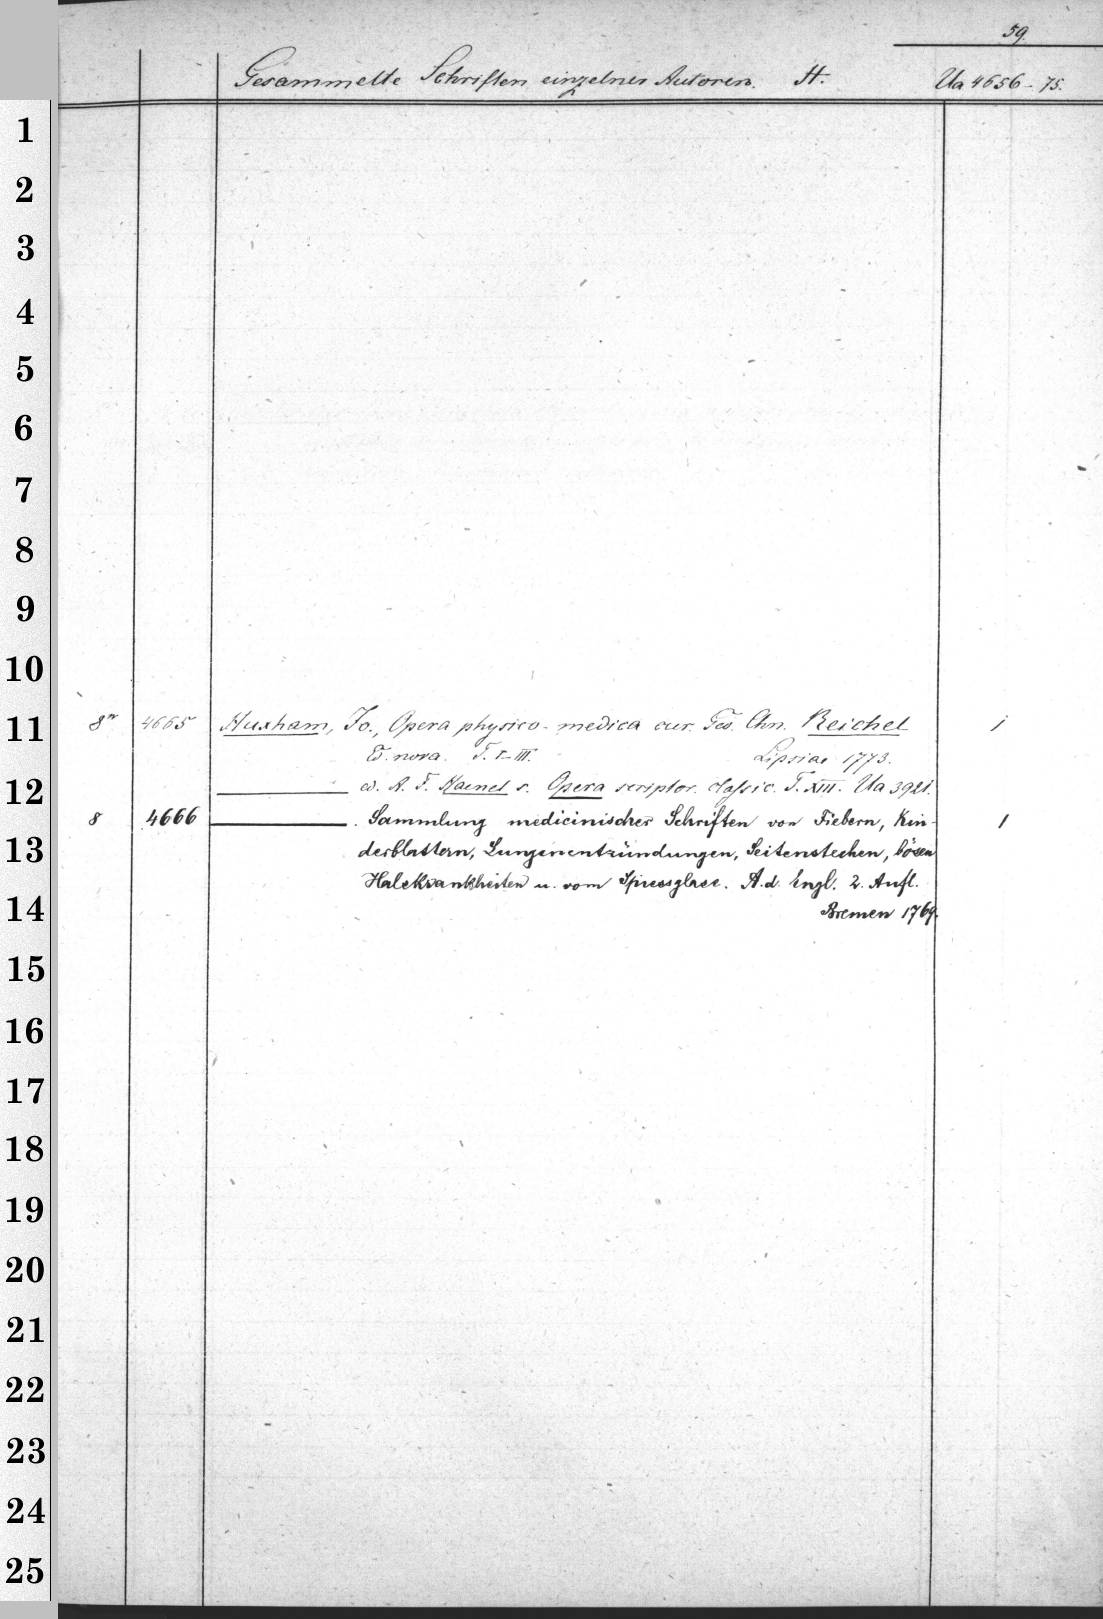 59.
Gesammelte Schriften einzelner Autoren. H. Ua 4656-75.
1
2
3
4
5
6
7
8
9
10
11 8° 4665 Huxham, Jo., Opera physico-medica cur. Geo. Chn. Reichel 1
Ed. nova. T. I-III. Lipsiae 1773.
12 ed. A. F. Haenel s. Opera scriptor. classic. T. XIII. Ua 3921.
8 4666 . Sammlung medicinischer Schriften von Fiebern, Kin- 1
13 derblattern, Lungenentzündungen, Seitenstechen, bösen
Halskrankheiten u. vom Spiessglase. A. d. Engl. 2. Aufl.
14 Bremen 1769.
15
16
17
18
19
20
21
22
23
24
25